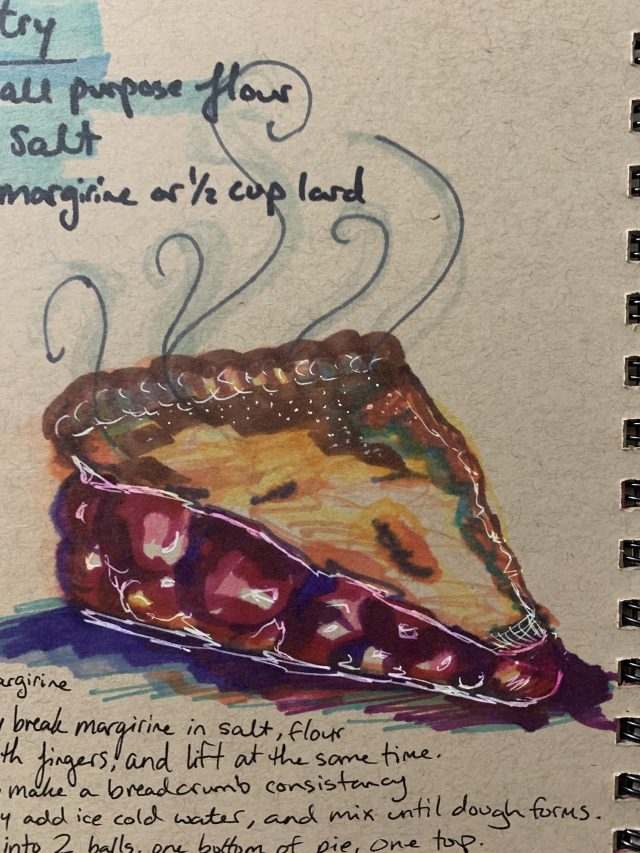 try
all purpose flour
Salt
margirine or 1/2 cup lard
argirine
y break margirine in salt, flour
th fingers, and lift at the same time.
make a breadcrumb consistancy
y add ice cold water, and mix until dough forms.
into 2 balls, one bottom of pie, one top.